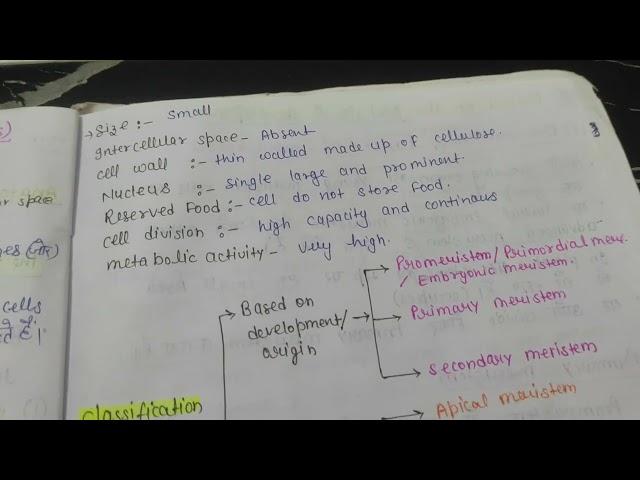 → Size :- small
Intercellular space - Absent
cell wall :- thin walled made up of cellulose.
Nucleus :- single large and prominent.
Reserved Food :- cell do not store food.
cell division :- high capacity and continous
metabolic activity - very high.
Based on
development/
origin
Promeristem/ Primordial meris.
/ Embryonic meristem.
Primary meristem
secondary meristem
classification
Apical meristem
space
cells